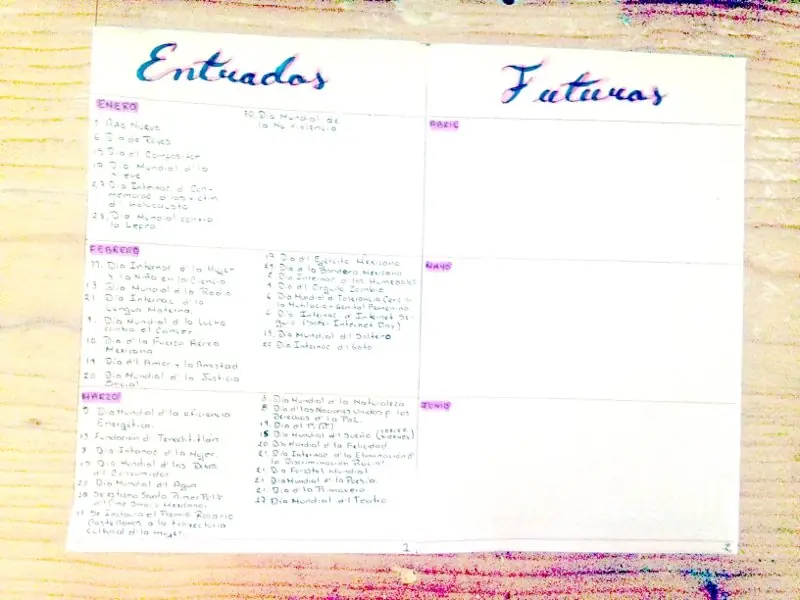 Entradas
ENERO
1 Año Nuevo
6 Día de Reyes
15 Día d'l Compositor
17 Día Mundial d' la
Nieve
27 Día Internac. d' Con-
memorac. a las víctim
d' Holocausto
28, Día Mundial contra
la Lepra
30, Día Mundial de
la No violencia
FEBRERO
11. Día Internac d' la Mujer
y la Niña en la Ciencia.
13 Día Mundial d' la Radio
21 Día Internac. d' la
Lengua Materna.
4. Día Mundial d' la Lucha
contra el Cáncer
10 Día d' la Fuerza Aérea
Mexicana
14 Día d'l Amor y la Amistad
20 Día Mundial d' la Justicia
Social
19 Día d'l Ejército Mexicano
24 Día d' la Bandera Mexicana
2 Día Internac. d' los Humedales
Día d'l Orgullo Zombie
6 Día Mundial d' Tolerancia Cero
la Mutilación Genital Femenina
6 Día Internac. d' Internet Se-
guro (Safer Internet Day)
13. Día Mundial d'l Soltero
20 Día Internac. d'l Gato
MARZO
5 Día Mundial d' la eficiencia
Energética.
13 Fundación d' Tenochtitlán
8 Día Internac d' la Mujer.
15 Día Mundial d' los Dchos
d'l Consumidor
22 Día Mundial d'l Agua
Se estrena Santa, Primer Pelíc
d' Cine Sonoro Mexicano.
Se Instaura el Premio Rosario
Castellanos a la trayectoria
cultural d' la mujer.
3 Día Mundial d' la Naturaleza
8 Día d' las Naciones Unidas p. los
Derechos d' la
14 Día d'l Pi (π)
15 Día Mundial d'l Sueño (viernes)
20 Día Mundial d' la Felicidad
21. Día Internac d' la Eliminación d'
la Discriminación Racial
21 Día Forestal Mundial
21 Día Mundial d' la Poesía.
21. Día d' la Primavera
27 Día Mundial d'l Teatro
1
Futuras
ABRIL
MAYO
JUNIO
2